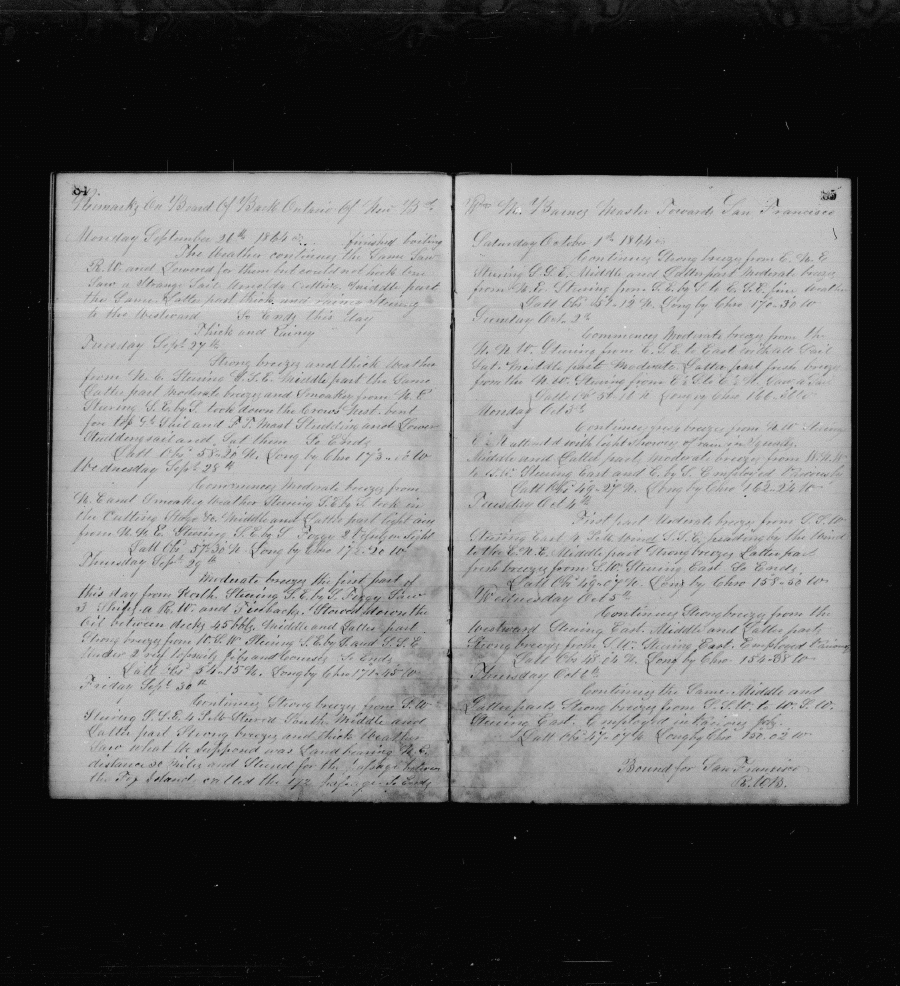 84
Remarks On Board Of Bark Ontario of New Bd.
Monday September 26th 1864 finished boiling
The Weather continues the Same Saw
R.W. and Lowered for them but could not hook One
Saw a Strange Sail Cutting middle part
the Same Latter part thick and rainy Steering
to the Westward So Ends this Day
Thick and Rainy
Tuesday Sept 27th
Strong breezes and thick Weather
from N.E. Steering S.S.E. Middle part the Same
Latter part moderate breezes and Smoakey from N.E
Steering S.E. by S. took down the Crows Nest. bent
for top Gt Sail and F.T. Mast Studding and Lower
Studdingsail and Set them So Ends
Latt Obs 58-20 N. Long by Chro 173- W
Wednesday Sept 28th
Commences Moderate breezes from
N.E and Smoakey Weather Steering S.E by S. took in
the Cutting Stage &c. Middle and Latter part light airs
from N.N.E. Steering S.E by S Foggy 2 Ships in Sight
Latt Obs 57-30 N Long by Chro 172-20 W
Thursday Sept 29th
Moderate breezes the first part of
this day from North. Steering S.E. by S. Foggy Saw
3 Ships a R.W. and Finbacks. Stowed down the
Oil between decks 45 bbls, Middle and Latter part
Strong breezes from W.S.W. Steering S.E by S. and S.S.E
Under 2 reef topsails Jibs and Courses So Ends
Latt Obs 54-15 N. Long by Chro 171-45 W
Friday Sept 30th
Continues Strong breezes from S.W
Steering S.S.E. 4 P.M. Steered South. Middle and
Latter part Strong breezes and thick Weather
Saw what We Supposed was Land bearing N.E.
distance 30 Miles and Steered for the Passage between
the Fox Island called the 172 Passage So Ends
85
Wm M. Barnes Master Towards San Francisco
Saturday October 1th 1864
Continues Strong breezes from E.N.E
Steering S.S.E. Middle and Latter part Moderate breezes
from N.E. Steering from S.E. by S. to E.S.E. fine weather
Latt Obs 52-12 N. Long by Chro 170-30 W
Sunday Oct 2th
Commences Moderate breezes from the
N.N.W. Steering from E.S.E. to East with all Sail
Set. Middle part Moderate. Latter part fresh breezes
from the N.W. Steering from
N. Long by Chro
Monday Oct 3th
Continues breezes from N.W Steering
attended with light Showers of rain in Squalls.
Middle and Latter part, moderate breezes from W.N.W
Steering East and E. by S. Employed Variously
Latt Obs 49-27 N. Long by Chro 162-24 W
Tuesday Oct 4th
First part Moderate breezes from S.S.W
Steering East 4 P.M. Wind S.S.E.
to the E.N.E. Middle part Strong breezes Latter part
fresh breezes from S.W. Steering East So Ends
Latt Ob 49-07 N Long by Chro 158-50 W
Wednesday Oct 5th
Continues Strong breezes from the
Westward Steering East. Middle and Latter part
Strong breezes from S.W. Steering East. Employed Variously
Latt Obs 48-04 N. Long by Chro 154-38 W
Thursday Oct 6th
Continues the Same Middle and
Latter parts Strong breezes from S.S.W. to W.S.W.
Steering East. Employed in Various Jobs.
Latt Obs 47-07 N Long by Chro 150-02 W
Bound for San Francisco